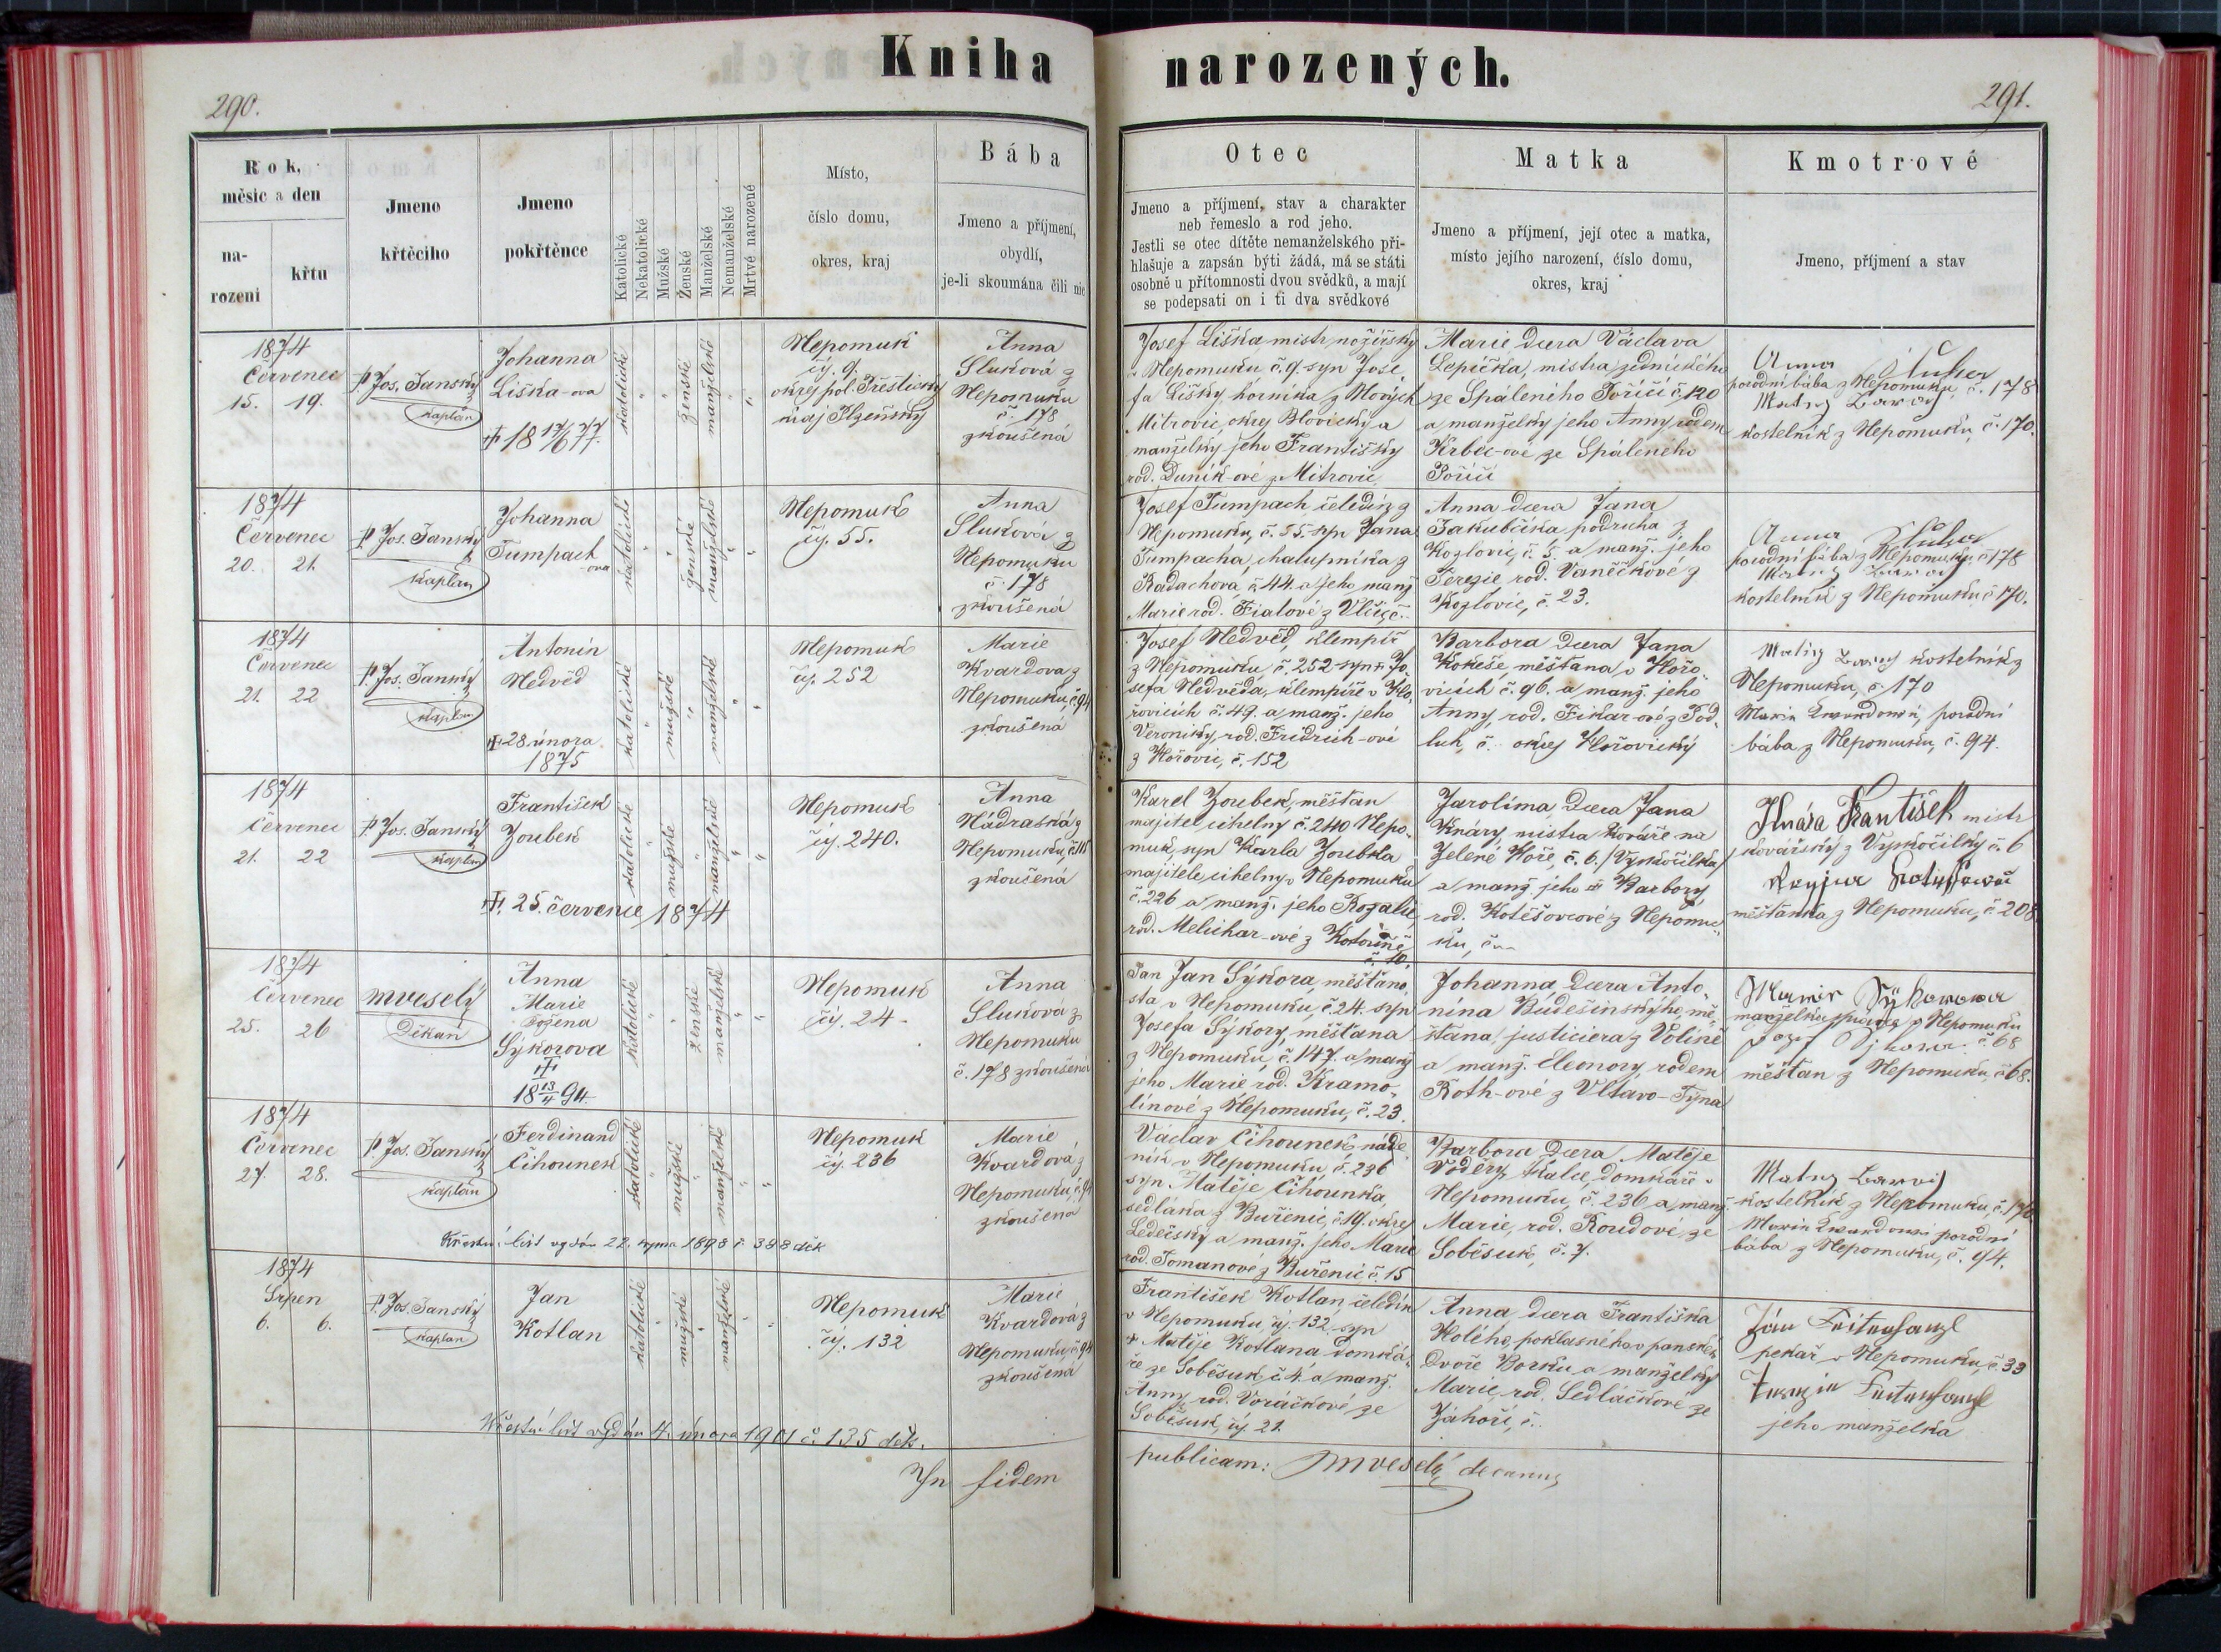 Kniha narozených.
290.
291.
Rok, měsíc a den
na-
rození
křtu
Jmeno
křtěcího
Jmeno
pokřtěnce
Katolické
Nekatolické
Mužské
Ženské
Manželské
Nemanželské
Mrtvě narozené
Místo,
číslo domu,
okres, kraj
Bába
Jmeno a příjmení,
obydlí,
je-li skoumána čili nic
Otec
Jmeno a příjmení, stav a charakter
neb řemeslo a rod jeho.
Jestli se otec dítěte nemanželského při-
hlašuje a zapsán býti žádá, má se státi
osobně u přítomnosti dvou svědků, a mají
se podepsati on i ti dva svědkové
Matka
Jmeno a příjmení, její otec a matka,
místo jejího narození, číslo domu,
okres, kraj
Kmotrové
Jmeno, příjmení a stav
1874
Červenec
15. 19.
P. Jos. Janský
kaplan
Johanna
Liška-ova
18 17/6 77.
katolické
ženské
manželské
Nepomuk
čj. 9.
okres pol. Přeštický
kraj Plzeňský
Anna
Sluková z
Nepomuku
č. 178
zkoušená
Josef Liška mistr nožířský
v Nepomuku č. 9. syn Jose-
fa Lišky, horníka z Nových
Mitrovic, okres Blovický a
manželky jeho Františky
rod. Duník-ové z Mitrovic
Marie dcera Václava
Lepíčka, mistra zednického
ze Spáleného Poříčí č. 120
a manželky jeho Anny rodem
Krbec-ové ze Spáleného
Poříčí
Anna
porodní bába z Nepomuku, č. 178
kostelník z Nepomuku, č. 170.
1874
Červenec
20. 21.
P. Jos. Janský
kaplan
Johanna
Tumpach
-ova
katolické
ženské
manželské
Nepomuk
čj. 55.
Anna
Sluková z
Nepomuku
č. 178
zkoušená
Josef Tumpach čeledín z
Nepomuku, č. 55. syn Jana
Tumpacha, chalupníka z
Radochova, č. 44. a jeho manž.
Marie rod. Fialové z Vlčic, č.
Anna dcera Jana
Jakubčíka, podruha z
Kozlovic, č. 5. a manž. jeho
Terezie rod. Vaněčkové z
Kozlovic, č. 23.
Anna
porodní bába z Nepomuku, č. 178
kostelník z Nepomuku č. 170.
1874
Červenec
21. 22
P. Jos. Janský
kaplan
Antonín
Nedvěd
28. února
1875
katolické
mužské
manželské
Nepomuk
čj. 252
Marie
Kvardova z
Nepomuku, č. 94
zkoušená
Josef Nedvěd, klempíř
z Nepomuku, č. 252 syn Jo-
sefa Nedvěda, klempíře v Ho-
řovicích č. 49. a manž. jeho
Veroniky, rod. Fridrich-ové
z Hořovic, č. 152
Barbora dcera Jana
Kokeše, měšťana v Hořo-
vicích č. 96. a manž. jeho
Anny, rod. Fikar-ové z Pod-
luh, č. okres Hořovický
kostelník z
Nepomuku, č. 170
porodní
bába z Nepomuku, č. 94.
1874
Červenec
21. 22
P. Jos. Janský
kaplan
František
Zoubek
25. července 1874
katolické
mužské
manželské
Nepomuk
čj. 240.
Anna
Nádraská z
Nepomuku, č. 115
zkoušená
Karel Zoubek, měšťan
majitel cihelny č. 240 Nepo-
muk, syn Karla Zoubka
majitele cihelny v Nepomuku
č. 226 a manž. jeho Rozalie,
rod. Melichar-ové z Kotouně
č. 10.
Jarolíma, dcera Jana
Knáry, mistra kováře na
Zelené Hoře, č. 6. /Vyskočilka/
a manž. jeho Barbory,
rod. Kotěšovcové z Nepomu-
ku, č.
Knára František mistr
kovářský z Vyskočilky č. 6
měšťanka z Nepomuku, č. 208
1874
Červenec
25. 26
MVeselý
Děkan
Anna
Marie
Božena
Sýkorova
18 13/11 94.
katolické
ženské
manželské
Nepomuk
čj. 24.
Anna
Sluková z
Nepomuku
č. 178 zkoušená
Pan Jan Sýkora, měšťano-
sta v Nepomuku, č. 24. syn
Josefa Sýkory, měšťana
z Nepomuku, č. 147. a manž.
jeho Marie rod. Kramo-
línové z Nepomuku, č. 23.
Johanna, dcera Anto-
nína Budešinského, mě-
šťana, justiciera z Volině
a manž. Eleonory, rodem
Roth-ové z Vltavo-Týna
Marie Sýkorova
manželka z Nepomuku
č. 68
měšťan z Nepomuku, č. 68.
1874
Červenec
27. 28.
P. Jos. Janský
kaplan
Ferdinand
Čihounek
katolické
mužské
manželské
Nepomuk
čj. 236
Marie
Kvardová z
Nepomuku, č. 94
zkoušená
Křestní list vydán 22. srpna 1898 č. 388 děk
Václav Čihounek, náde-
ník v Nepomuku, č. 236
syn Matěje Čihounka,
sedláka z Buřenic, č. 19. okres
Ledečský a manž. jeho Marie
rod. Tomanové z Buřenic č. 15
Barbora dcera Matěje
Voděry, tkalce, domkáře v
Nepomuku, č. 236 a manž.
Marie, rod. Roudové, ze
Soběsuk, č. 7.
kostelník z Nepomuku, č. 170
porodní
bába z Nepomuku, č. 94.
1874
Srpen
6. 6.
P. Jos. Janský
kaplan
Jan
Kotlan
katolické
mužské
manželské
Nepomuk
čj. 132
Marie
Kvardová z
Nepomuku, č. 94
zkoušená
Křestní list vydán 4. února 1901 č. 135 děk.
František Kotlan, čeledín
v Nepomuku čj. 132. syn
Matěje Kotlana domká-
ře ze Soběsuk č. 4. a manž.
Anny rod. Voráčkové ze
Soběsuk, čj. 21.
Anna dcera Františka
Holého, poklasného v panském
dvoře Borku a manželky
Marie, rod. Sedláčkové ze
Záhoří, č.
Ján
pekař v Nepomuku, č. 33
jeho manželka
In fidem
publicam: MVeselý decanus